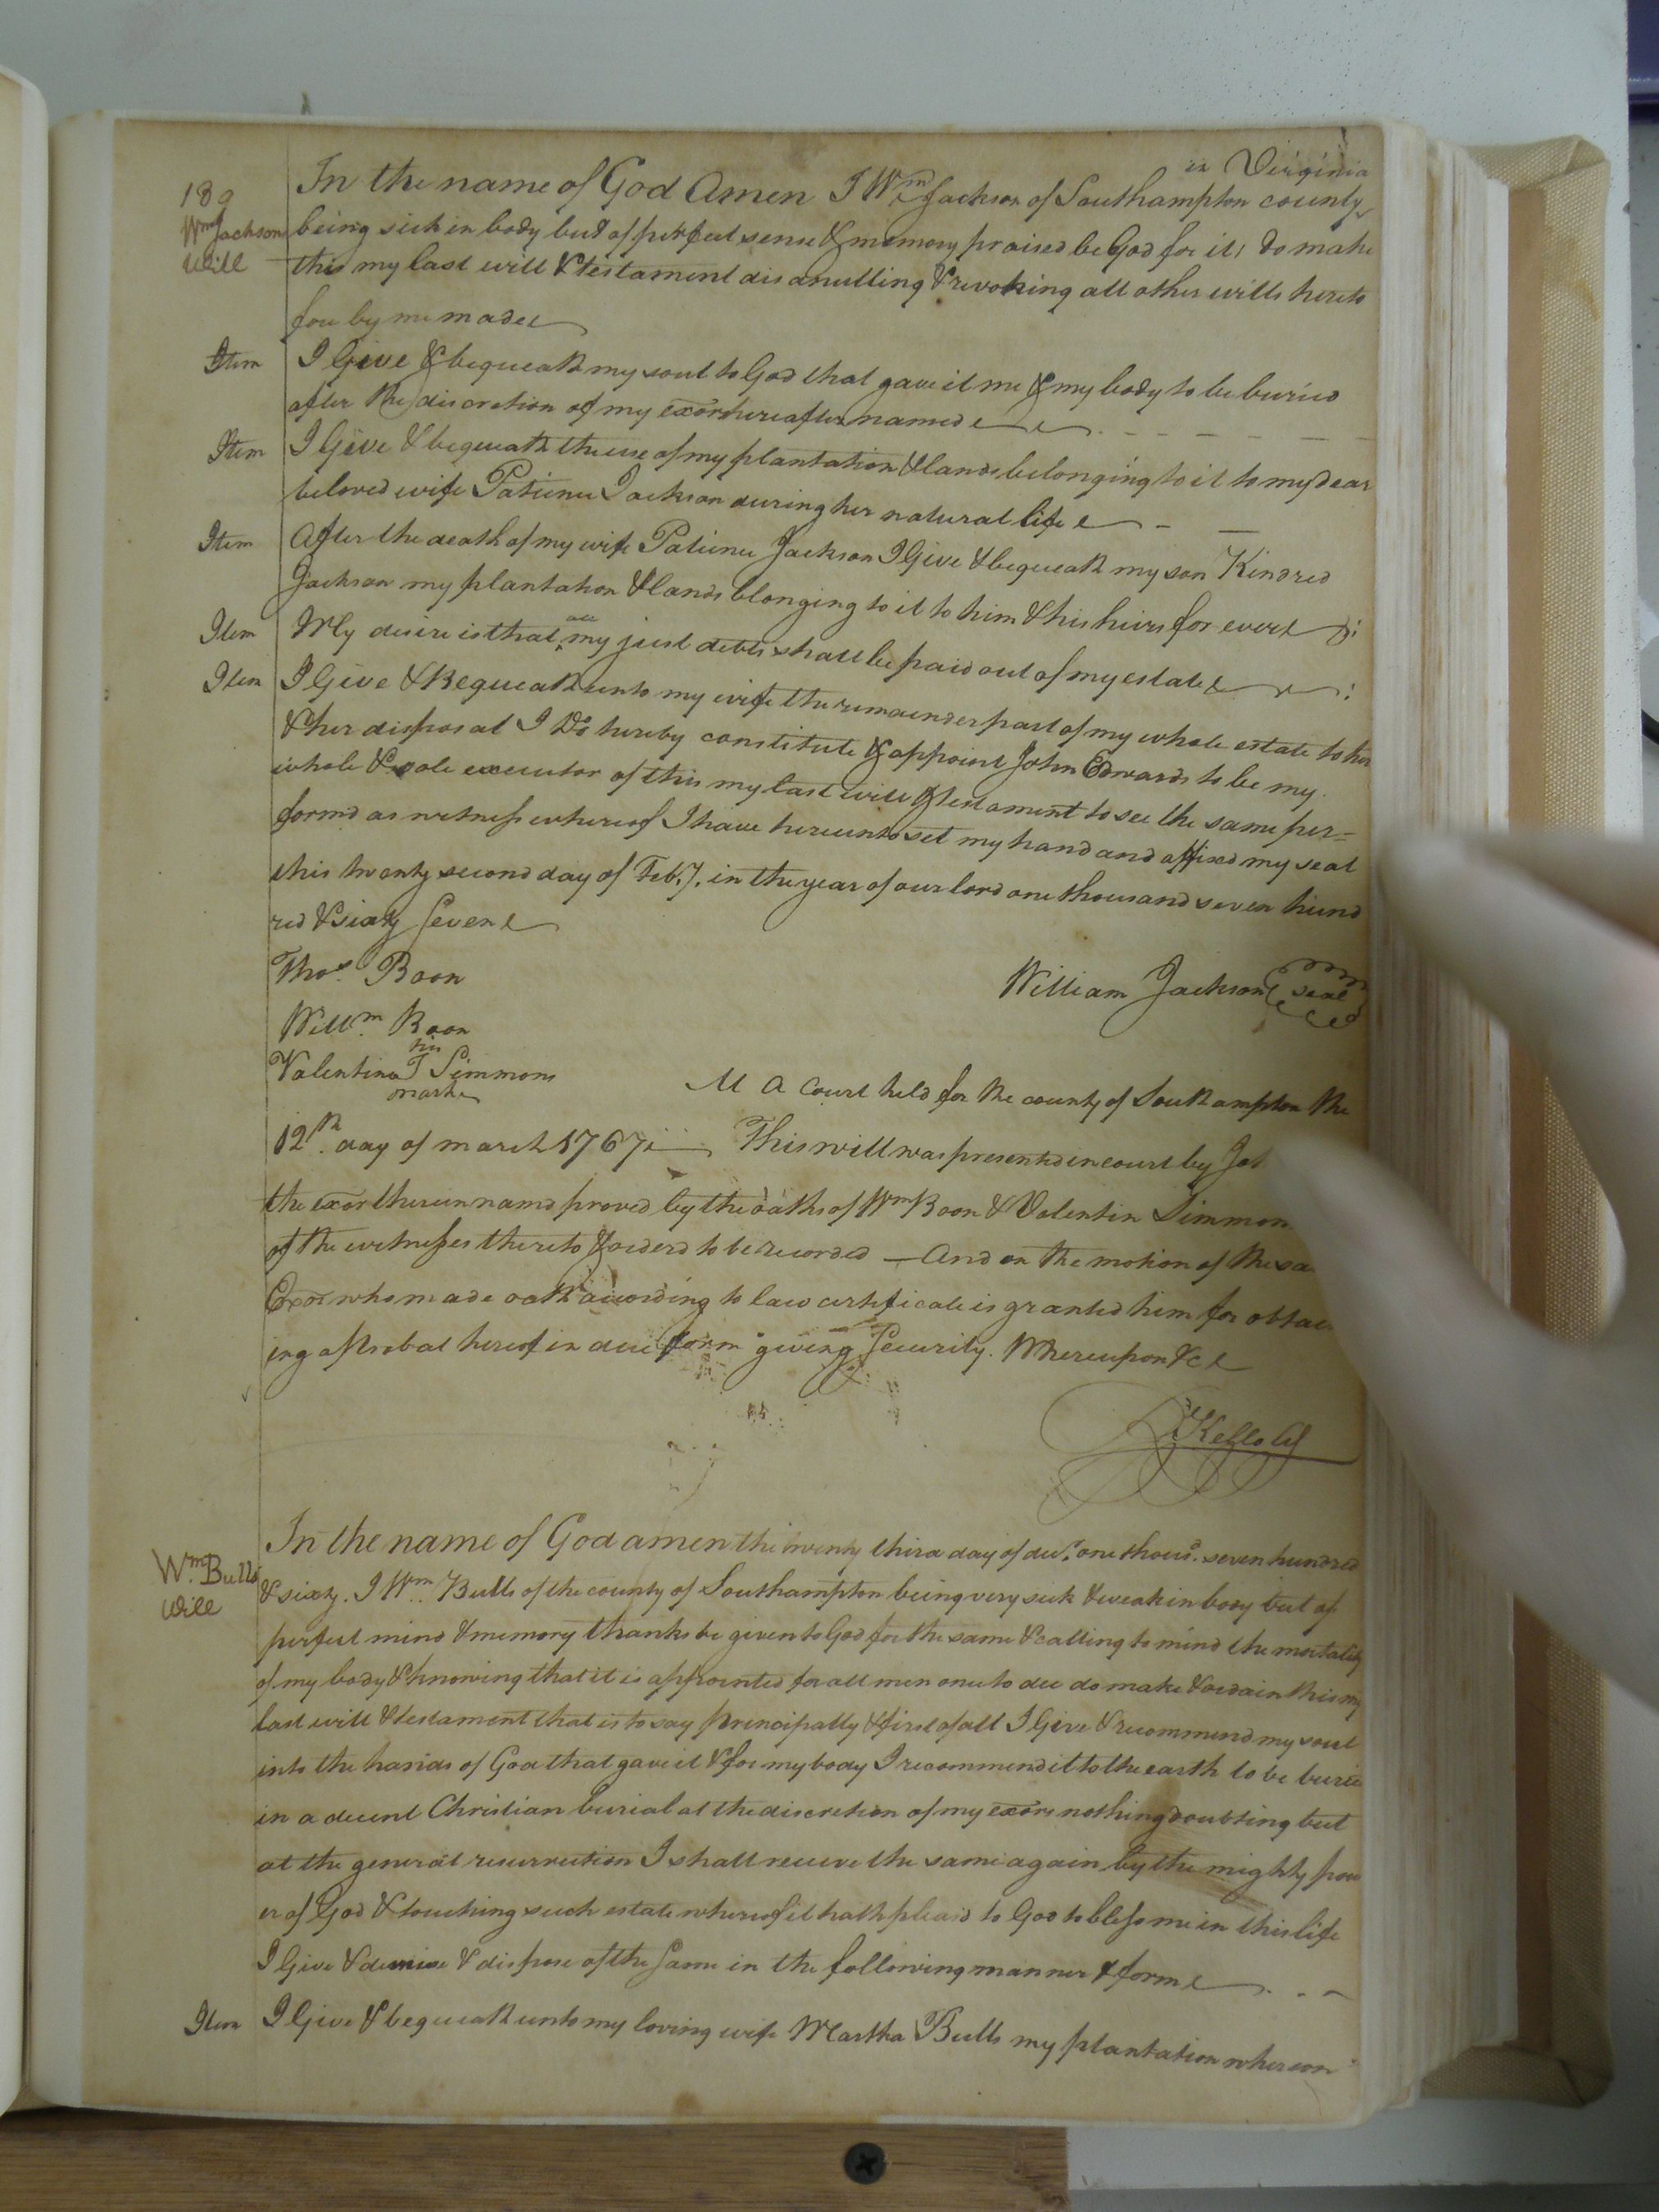 189
Wm Jackson
Will
in Virginia
In the name of God Amen I Wm Jackson of Southampton county
being sick in body but of perfect sense & memory praised be God for it, do make
this my last will & testament disanulling & revoking all other wills hereto
fore by me made
Item I Give & bequeath my soul to God that gave it me & my body to be buried
after the discretion of my exor hereafter named
Item I Give & bequeath the use of my plantation & lands belonging to it to my dear
beloved wife Patience Jackson during her natural life
Item After the death of my wife Patience Jackson I Give & bequeath my son Kindred
Jackson my plantation & lands blonging to it to him & his heirs for ever
Item My desire is that all my just debts shall be paid out of my estate
Item I Give & Bequeath unto my wife the remainder part of my whole estate to her
& her disposal I Do hereby constitute & appoint John Edwards to be my
whole & sole executor of this my last will & testament to see the same per=
formd as witness whereof I have hereunto set my hand and affixed my seal
this twenty second day of Feb.y. in the year of our lord one thousand seven hund
red & sixty seven
Thos. Boon
William Jackson seal
Willm. Boon
his
Valentine T Simmons
mark
At a Court held for the county of Southampton the
12th. day of march 1767 This will was presented in court by
the exor therein namd proved by the oaths of Wm Boon & Valentin Simmon
of the witnesses thereto & orderd to be recorded — And on the motion of the
Exor who made oath according to law certificate is granted him for obtai
ing a Probat hereof in due form giving Security. Whereupon &c
R Kello Cl
Wm. Bulls
Will
In the name of God amen the twenty third day of decr. one thous. seven hundred
& sixty. I Wm. Bulls of the county of Southampton being very sick & weak in body but of
perfect mind & memory thanks be given to God for the same & calling to mind the mortality
of my body & knowing that it is appointed for all men once to die do make & ordain this my
last will & testament that is to say principally & first of all I Give & recommend my soul
into the hands of God that gave it & for my body I recommend it to the earth to be buried
in a decent Christian burial at the discretion of my exors nothing doubting but
at the general resurrection I shall receive the same again by the mighty pow
er of God & touching such estate whereof it hath pleasd to God to bless me in this life
I Give & demise & dispose of the same in the following manner & form
Item I Give & bequeath unto my loving wife Martha Bulls my plantation whereon